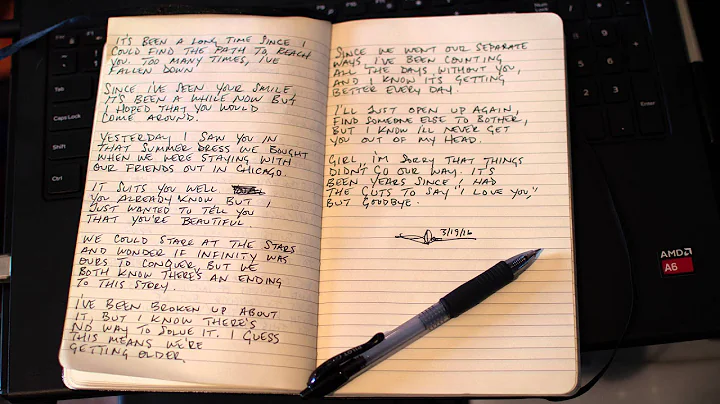 IT'S BEEN A LONG TIME SINCE I
COULD FIND THE PATH TO REACH
YOU. TOO MANY TIMES, I'VE
FALLEN DOWN
SINCE I'VE SEEN YOUR SMILE,
IT'S BEEN A WHILE NOW BUT
I HOPED THAT YOU WOULD
COME AROUND.
YESTERDAY I SAW YOU IN
THAT SUMMER DRESS WE BOUGHT
WHEN WE WERE STAYING WITH
OUR FRIENDS OUT IN CHICAGO.
IT SUITS YOU WELL
YOU ALREADY KNOW, BUT I
JUST WANTED TO TELL YOU
THAT YOU'RE BEAUTIFUL.
WE COULD STARE AT THE STARS
AND WONDER IF INFINITY WAS
OURS TO CONQUER, BUT WE
BOTH KNOW THERE'S AN ENDING
TO THIS STORY.
I'VE BEEN BROKEN UP ABOUT
IT, BUT I KNOW THERE'S
NO WAY TO SOLVE IT. I GUESS
THIS MEANS WE'RE
GETTING OLDER.
SINCE WE WENT OUR SEPARATE
WAYS, I'VE BEEN COUNTING
ALL THE DAYS WITHOUT YOU,
AND I KNOW IT'S GETTING
BETTER EVERY DAY.
I'LL JUST OPEN UP AGAIN,
FIND SOMEONE ELSE TO BOTHER,
BUT I KNOW I'LL NEVER GET
YOU OUT OF MY HEAD.
GIRL, I'M SORRY THAT THINGS
DIDN'T GO OUR WAY. IT'S
BEEN YEARS SINCE I HAD
THE GUTS TO SAY "I LOVE YOU,"
BUT GOODBYE.
3/19/16
Tab
Caps Lock
Shift
Ctrl
Enter
AMD
A6